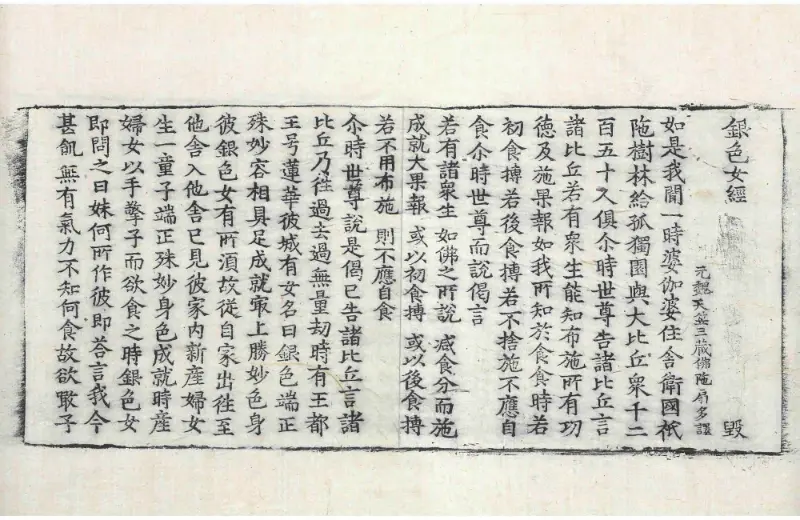 銀色女經 毀
元魏天竺三藏佛陁扇多譯
如是我聞一時婆伽婆住舍衛國祇
陁樹林給孤獨園與大比丘衆千二
百五十人俱尒時世尊告諸比丘言
諸比丘若有衆生能知布施所有功
德及施果報如我所知於食食時若
初食摶若後食摶若不捨施不應自
食尒時世尊而說偈言
若有諸衆生 如佛之所說 減食分而施
成就大果報 或以初食摶 或以後食摶
若不用布施 則不應自食
尒時世尊說是偈已告諸比丘言諸
比丘乃往過去過無量劫時有王都
王号蓮華彼城有女名曰銀色端正
殊妙容相具足成就㝡上勝妙色身
彼銀色女有所須故從自家出往至
他舍入他舍已見彼家內新產婦女
生一童子端正殊妙身色成就時產
婦女以手擎子而欲食之時銀色女
即問之曰妹何所作彼即荅言我今
甚飢無有氣力不知何食故欲噉子